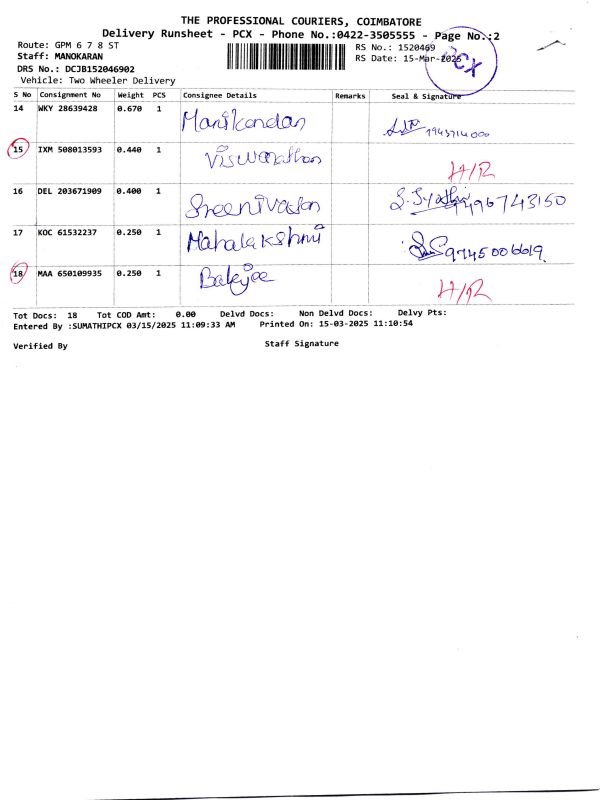 THE PROFESSIONAL COURIERS, COIMBATORE
Delivery Runsheet - PCX - Phone No.:0422-3505555 - Page No.:2
Route: GPM 6 7 8 ST
Staff: MANOKARAN
DRS No.: DCJB152046902
Vehicle: Two Wheeler Delivery
RS No.: 1520469
RS Date: 15-Mar-2025
PCX
S No Consignment No Weight PCS Consignee Details Remarks Seal & Signature
14 WKY 28639428 0.670 1 Manikandan
15 IXM 508013593 0.440 1 Viswanathan H/R
16 DEL 203671909 0.400 1 Sreenivasan
17 KOC 61532237 0.250 1 Mahalakshmi 9745006619
18 MAA 650109935 0.250 1 Balajee H/R
Tot Docs: 18 Tot COD Amt: 0.00 Delvd Docs: Non Delvd Docs: Delvy Pts:
Entered By :SUMATHIPCX 03/15/2025 11:09:33 AM Printed On: 15-03-2025 11:10:54
Verified By Staff Signature